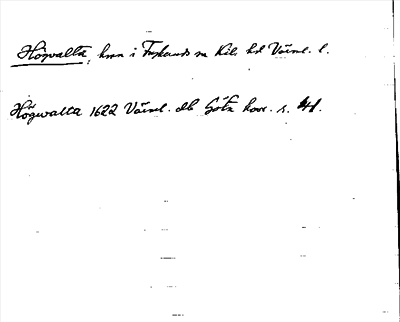 Högvalta, hmn i Frykeruds sn Kils hd Värml. l.
Högwalta 1622 Värml. db Götr. hovr. s. 41.